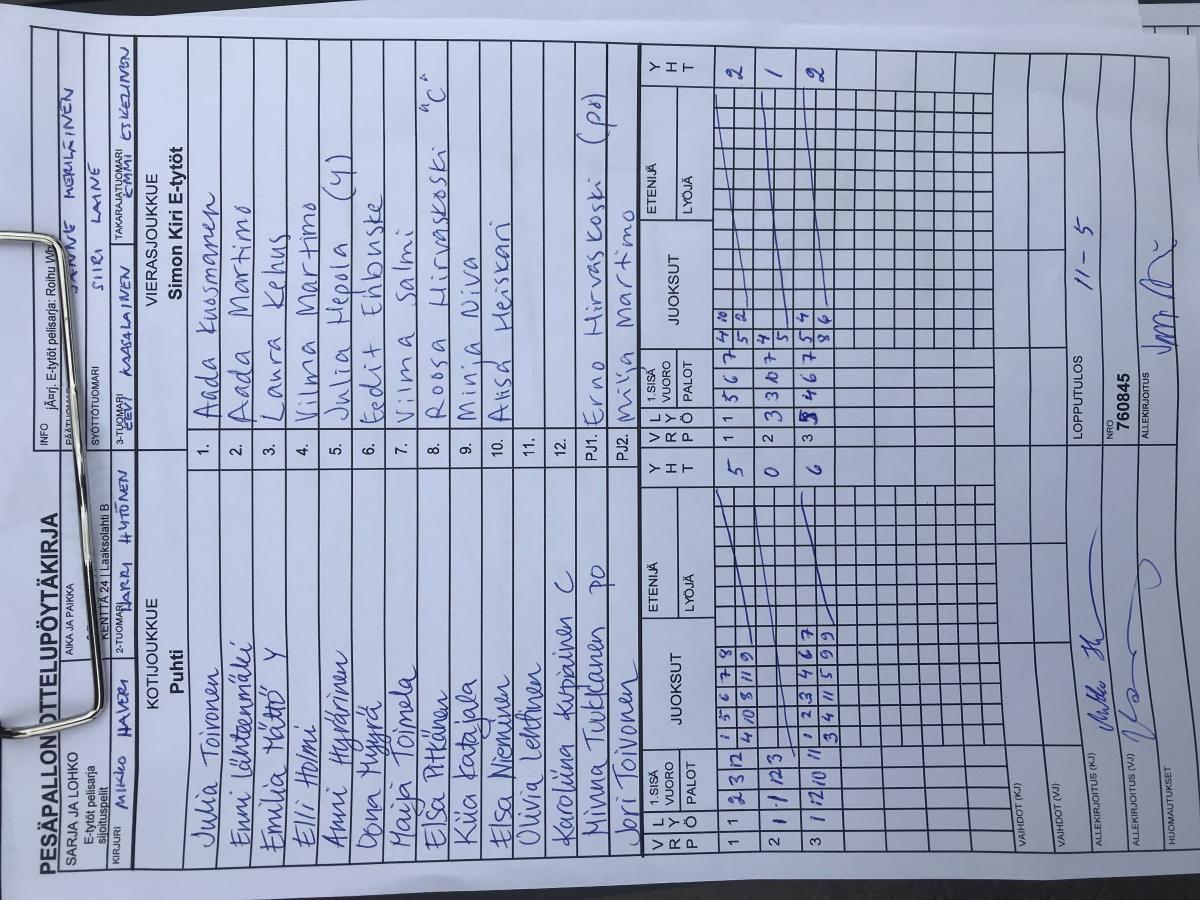 PESÄPALLON OTTELUPÖYTÄKIRJA
SARJA JA LOHKO
E-tytöt pelisarja
sijoituspelit
AIKA JA PAIKKA
KENTTÄ 24 | Laaksolahti B
INFO
jÄ¤rj, E-tytöt pelisarja: Roihu
PÄÄTUOMARI
JANNE MERILÄINEN
SYÖTTÖTUOMARI
SIIRI LAINE
KIRJURI MIKKO HAVERI
2-TUOMARI HARRI HYTÖNEN
3-TUOMARI
TAKARAJATUOMARI EMMI ESKELINEN
KOTIJOUKKUE
Puhti
VIERASJOUKKUE
Simon Kiri E-tytöt
Julia Toivonen 1. Aada Kuosmanen
Enni Lähteenmäki 2. Aada Martimo
Emilia Mättö Y 3. Laura Kehus
Elli Holmi 4. Vilma Martimo
Anni Hyvärinen 5. Julia Hepola (Y)
Oona Myyrä 6. Eedit Ehbuske
Maija Toimela 7. Vilma Salmi
Elsa Pitkänen 8. Roosa Hirvaskoski "C"
Kiia Katajala 9. Minja Niva
Elsa Nieminen 10. Alisa Heiskari
Olivia Lehtinen 11.
Karoliina Kubiainen C 12.
Minna Tuukkanen PO PJ1. Erno Hirvaskoski
Jori Toivonen PJ2. Milja Martimo
V R P
L Y Ö
1.SISÄ VUORO
PALOT
JUOKSUT
ETENIJÄ
LYÖJÄ
Y H T
V R P
L Y Ö
1.SISÄ VUORO
PALOT
JUOKSUT
ETENIJÄ
LYÖJÄ
Y H T
1 1 2 3 12 1 5 6 7 8 5 1 1 5 6 7 4 10 2
4 10 8 11 9 5 2
2 1 1 12 3 0 2 3 3 10 7 4 1
5
3 1 12 10 11 1 2 3 4 6 7 6 3 4 6 7 5 4 2
3 4 11 5 9 9 8 6
VAIHDOT (KJ)
VAIHDOT (VJ)
LOPPUTULOS 11 - 5
ALLEKIRJOITUS (KJ)
NRO
760845
ALLEKIRJOITUS (VJ)
ALLEKIRJOITUS
HUOMAUTUKSET